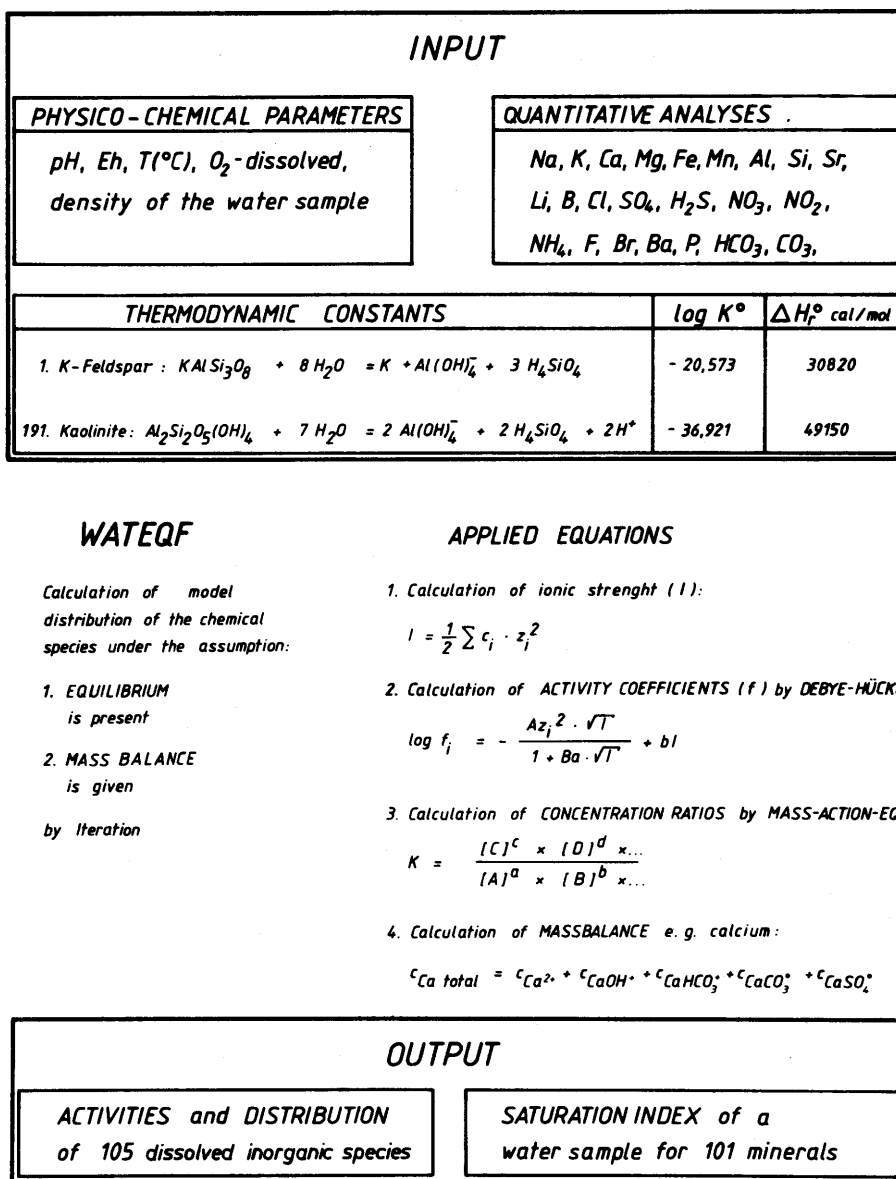 INPUT
PHYSICO-CHEMICAL PARAMETERS
pH, Eh, T(°C), O₂-dissolved,
density of the water sample
QUANTITATIVE ANALYSES .
Na, K, Ca, Mg, Fe, Mn, Al, Si, Sr,
Li, B, Cl, SO₄, H₂S, NO₃, NO₂,
NH₄, F, Br, Ba, P, HCO₃, CO₃,
THERMODYNAMIC CONSTANTS log K° ΔHᵣ° cal/mol
1. K-Feldspar : KAlSi₃O₈ + 8 H₂O = K + Al(OH)₄⁻ + 3 H₄SiO₄ - 20,573 30820
191. Kaolinite: Al₂Si₂O₅(OH)₄ + 7 H₂O = 2 Al(OH)₄⁻ + 2 H₄SiO₄ + 2H⁺ - 36,921 49150
WATEQF
Calculation of model
distribution of the chemical
species under the assumption:
1. EQUILIBRIUM
is present
2. MASS BALANCE
is given
by Iteration
APPLIED EQUATIONS
1. Calculation of ionic strenght (I):
I = 1/2 ∑ cᵢ · zᵢ²
2. Calculation of ACTIVITY COEFFICIENTS (f) by DEBYE-HÜCK
log fᵢ = - Azᵢ² · √I / 1 + Ba · √I + bI
3. Calculation of CONCENTRATION RATIOS by MASS-ACTION-EQ
K = [C]ᶜ × [D]ᵈ ×... / [A]ᵃ × [B]ᵇ ×...
4. Calculation of MASSBALANCE e. g. calcium:
cCa total = cCa²⁺ + cCaOH⁺ + cCaHCO₃⁺ + cCaCO₃° + cCaSO₄°
OUTPUT
ACTIVITIES and DISTRIBUTION
of 105 dissolved inorganic species
SATURATION INDEX of a
water sample for 101 minerals